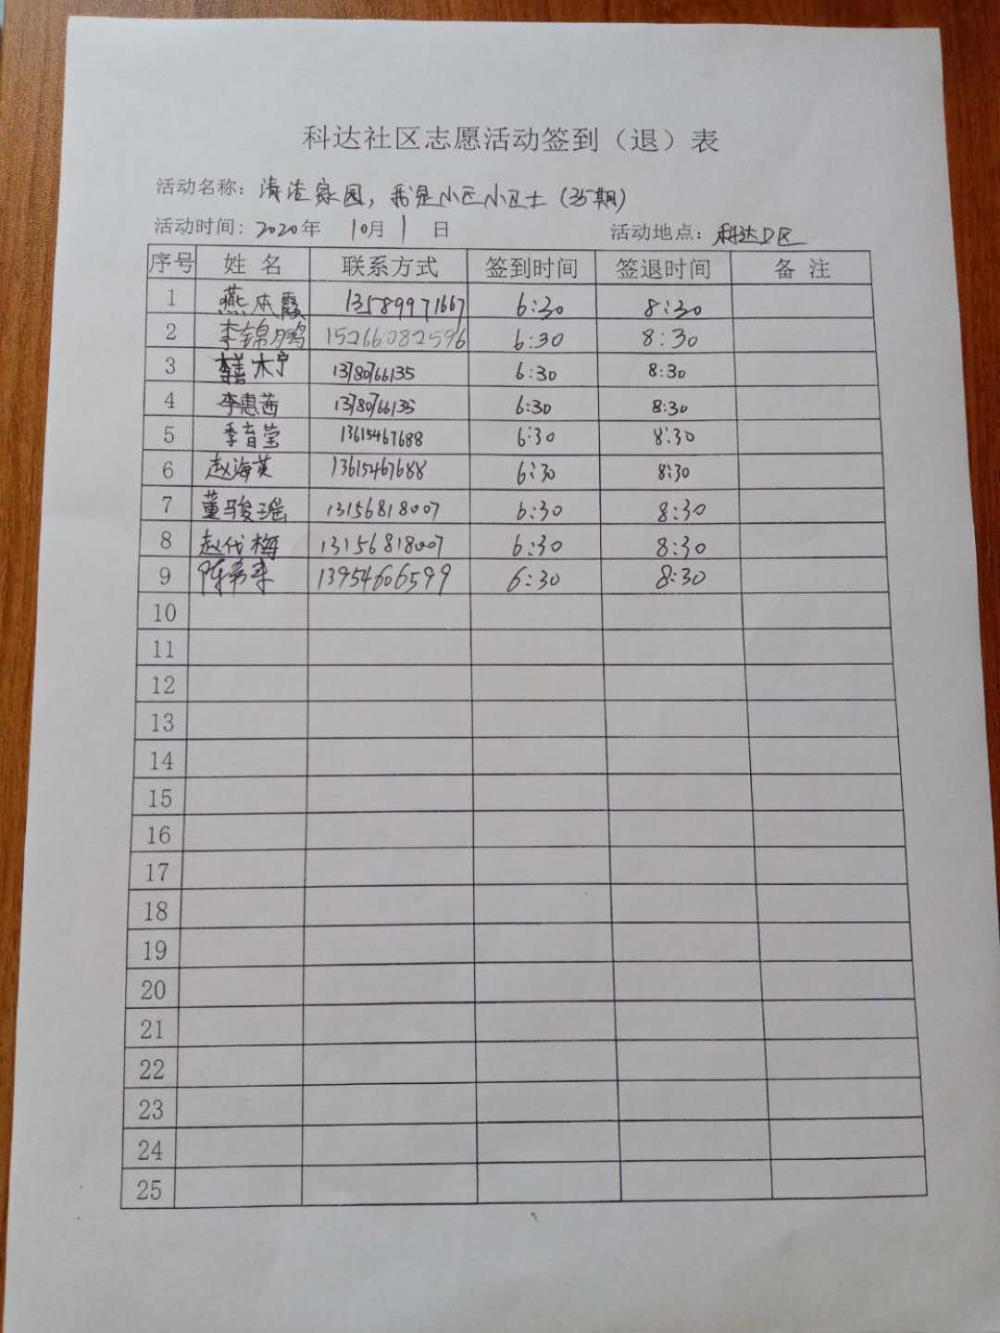 科达社区志愿活动签到（退）表
活动名称：清洁家园，我是小区小卫士（35期）
活动时间：2020年 10月 1 日 活动地点：科达D区
序号 姓 名 联系方式 签到时间 签退时间 备 注
1 燕本霞 13589971667 6:30 8:30
2 李锦鹏 15266082596 6:30 8:30
3 13780766135 6:30 8:30
4 李惠茜 13780766135 6:30 8:30
5 季音莹 13615467688 6:30 8:30
6 赵海英 13615467688 6:30 8:30
7 董骏瑶 13156818007 6:30 8:30
8 赵代梅 13156818007 6:30 8:30
9 陈 13954606599 6:30 8:30
10
11
12
13
14
15
16
17
18
19
20
21
22
23
24
25